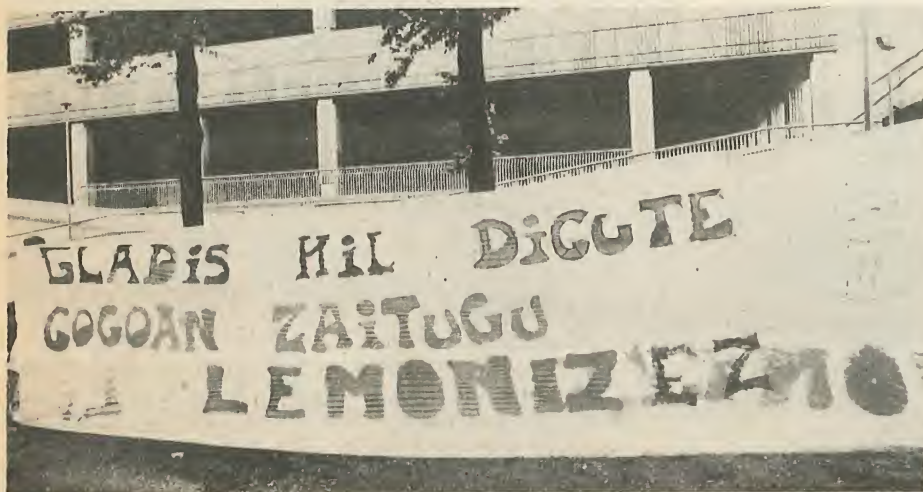 GLADiS HiL DiGUTE
GOGOAN ZAiTUGU
LEMONIZ EZ